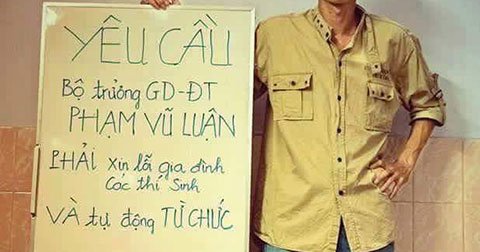 YÊU CẦU
Bộ trưởng GD-ĐT
PHẠM VŨ LUẬN
PHẢI xin lỗi gia đình
Các thí sinh
VÀ tự động TỪ CHỨC